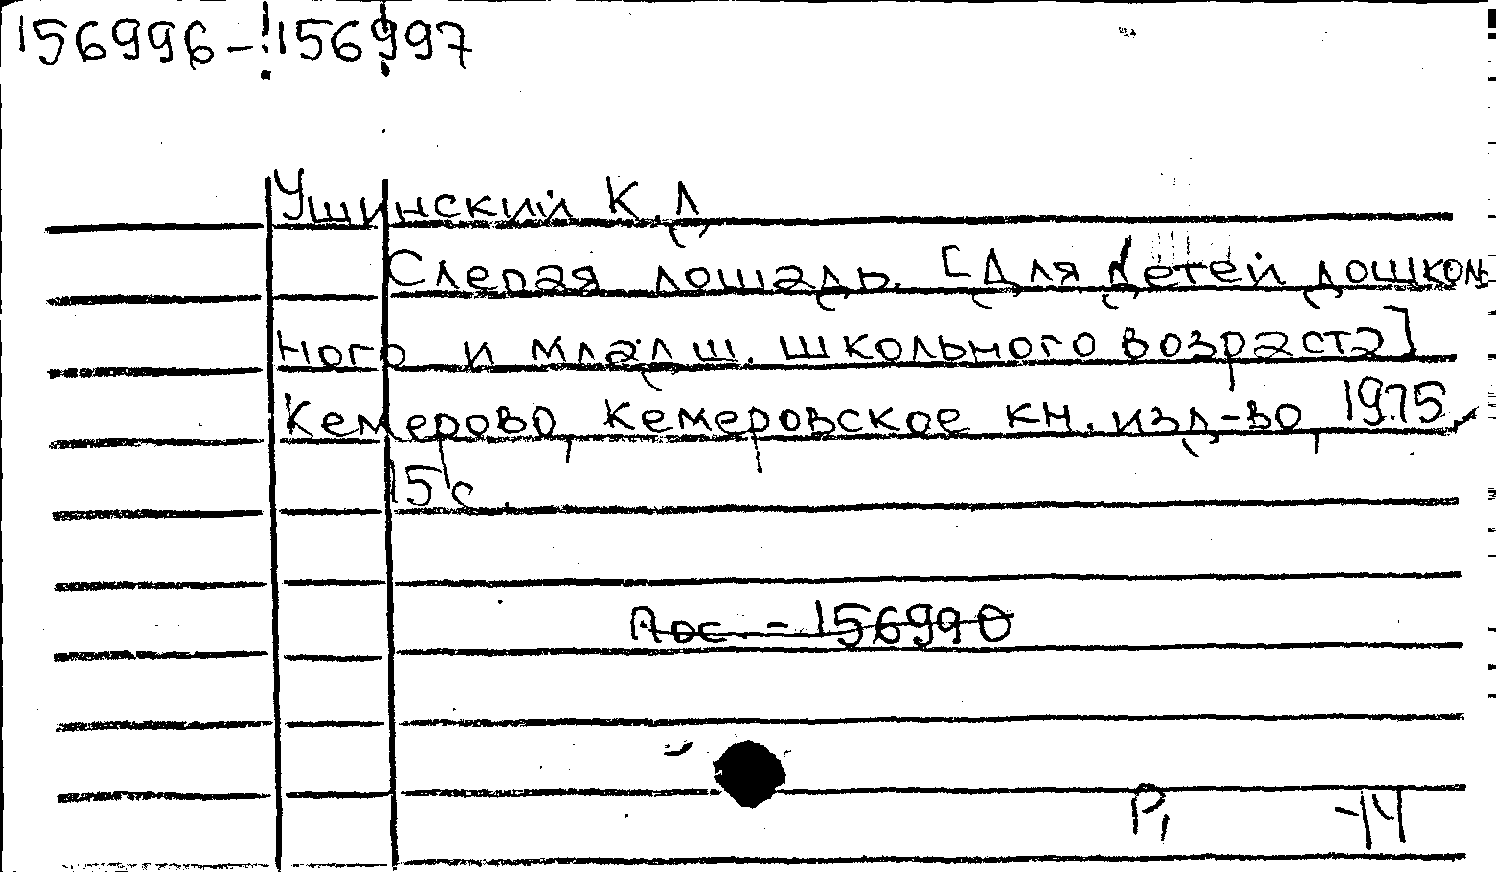 156996-156997
Ушинский К.Д
Слепая лошадь. [Для детей дошколь
ного и младш. школьного возраста]
Кемерово, Кемеровское кн. изд-во, 1975.
15 с.
Аос. - 156990
Р,